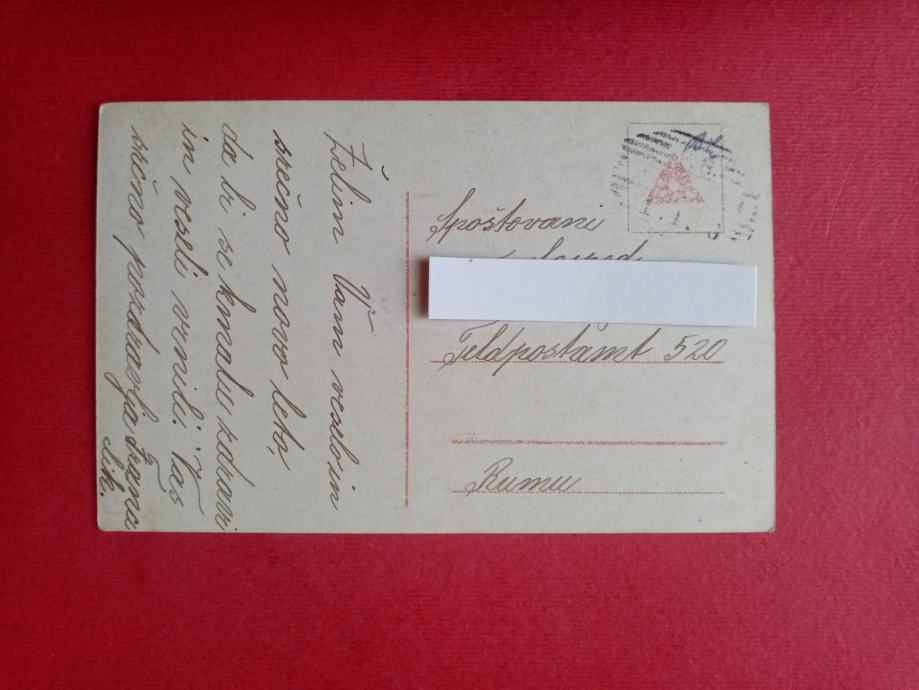 Želim Vam veselo in
srečno novo leto,
da bi se kmalu zdravi
in veseli vrnili. Vas
srčno pozdravlja
Lik.
Spoštovani
Gospod
Feldpostamt 520
Rumu